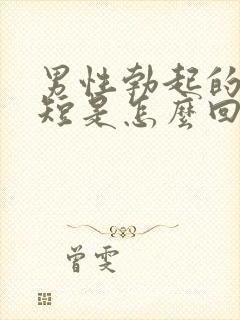 男性勃起的
短是怎麼回
曾雯